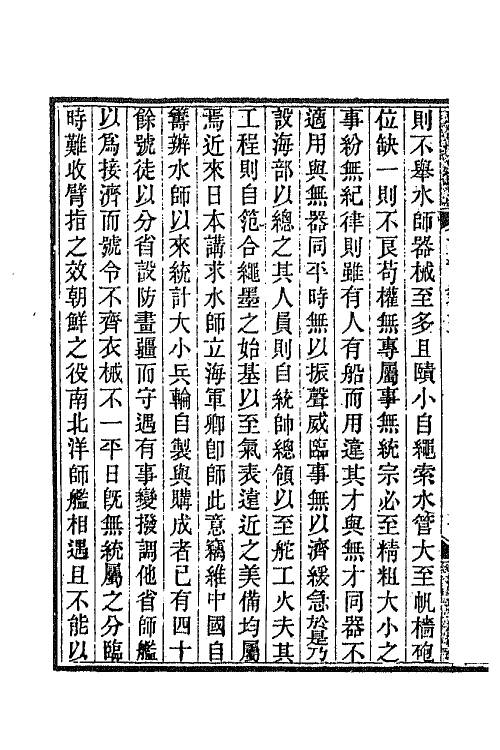 則不舉水師器械至多且賾小自繩索水管大至帆檣砲
位缺一則不良苟權無專屬事無統宗必至精粗大小之
事紛無紀律則雖有人有船而用違其才與無才同器不
適用與無器同平時無以振聲威臨事無以濟緩急於是乃
設海部以總之其人員則自統帥總領以至舵工火夫其
工程則自笵合繩墨之始基以至氣表遠近之美備均屬
焉近來日本講求水師立海軍卿卽師此意竊維中國自
籌辦水師以來統計大小兵輪自製與購成者已有四十
餘號徒以分省設防畫疆而守遇有事變撥調他省師艦
以爲接濟而號令不齊衣械不一平日旣無統屬之分臨
時難收臂指之效朝鮮之役南北洋師艦相遇且不能以